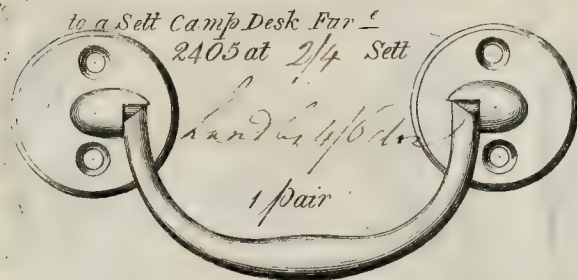 to a Sett Camp Desk Fur.e
2405 at 2/4 Sett
4/6 doz
1 pair